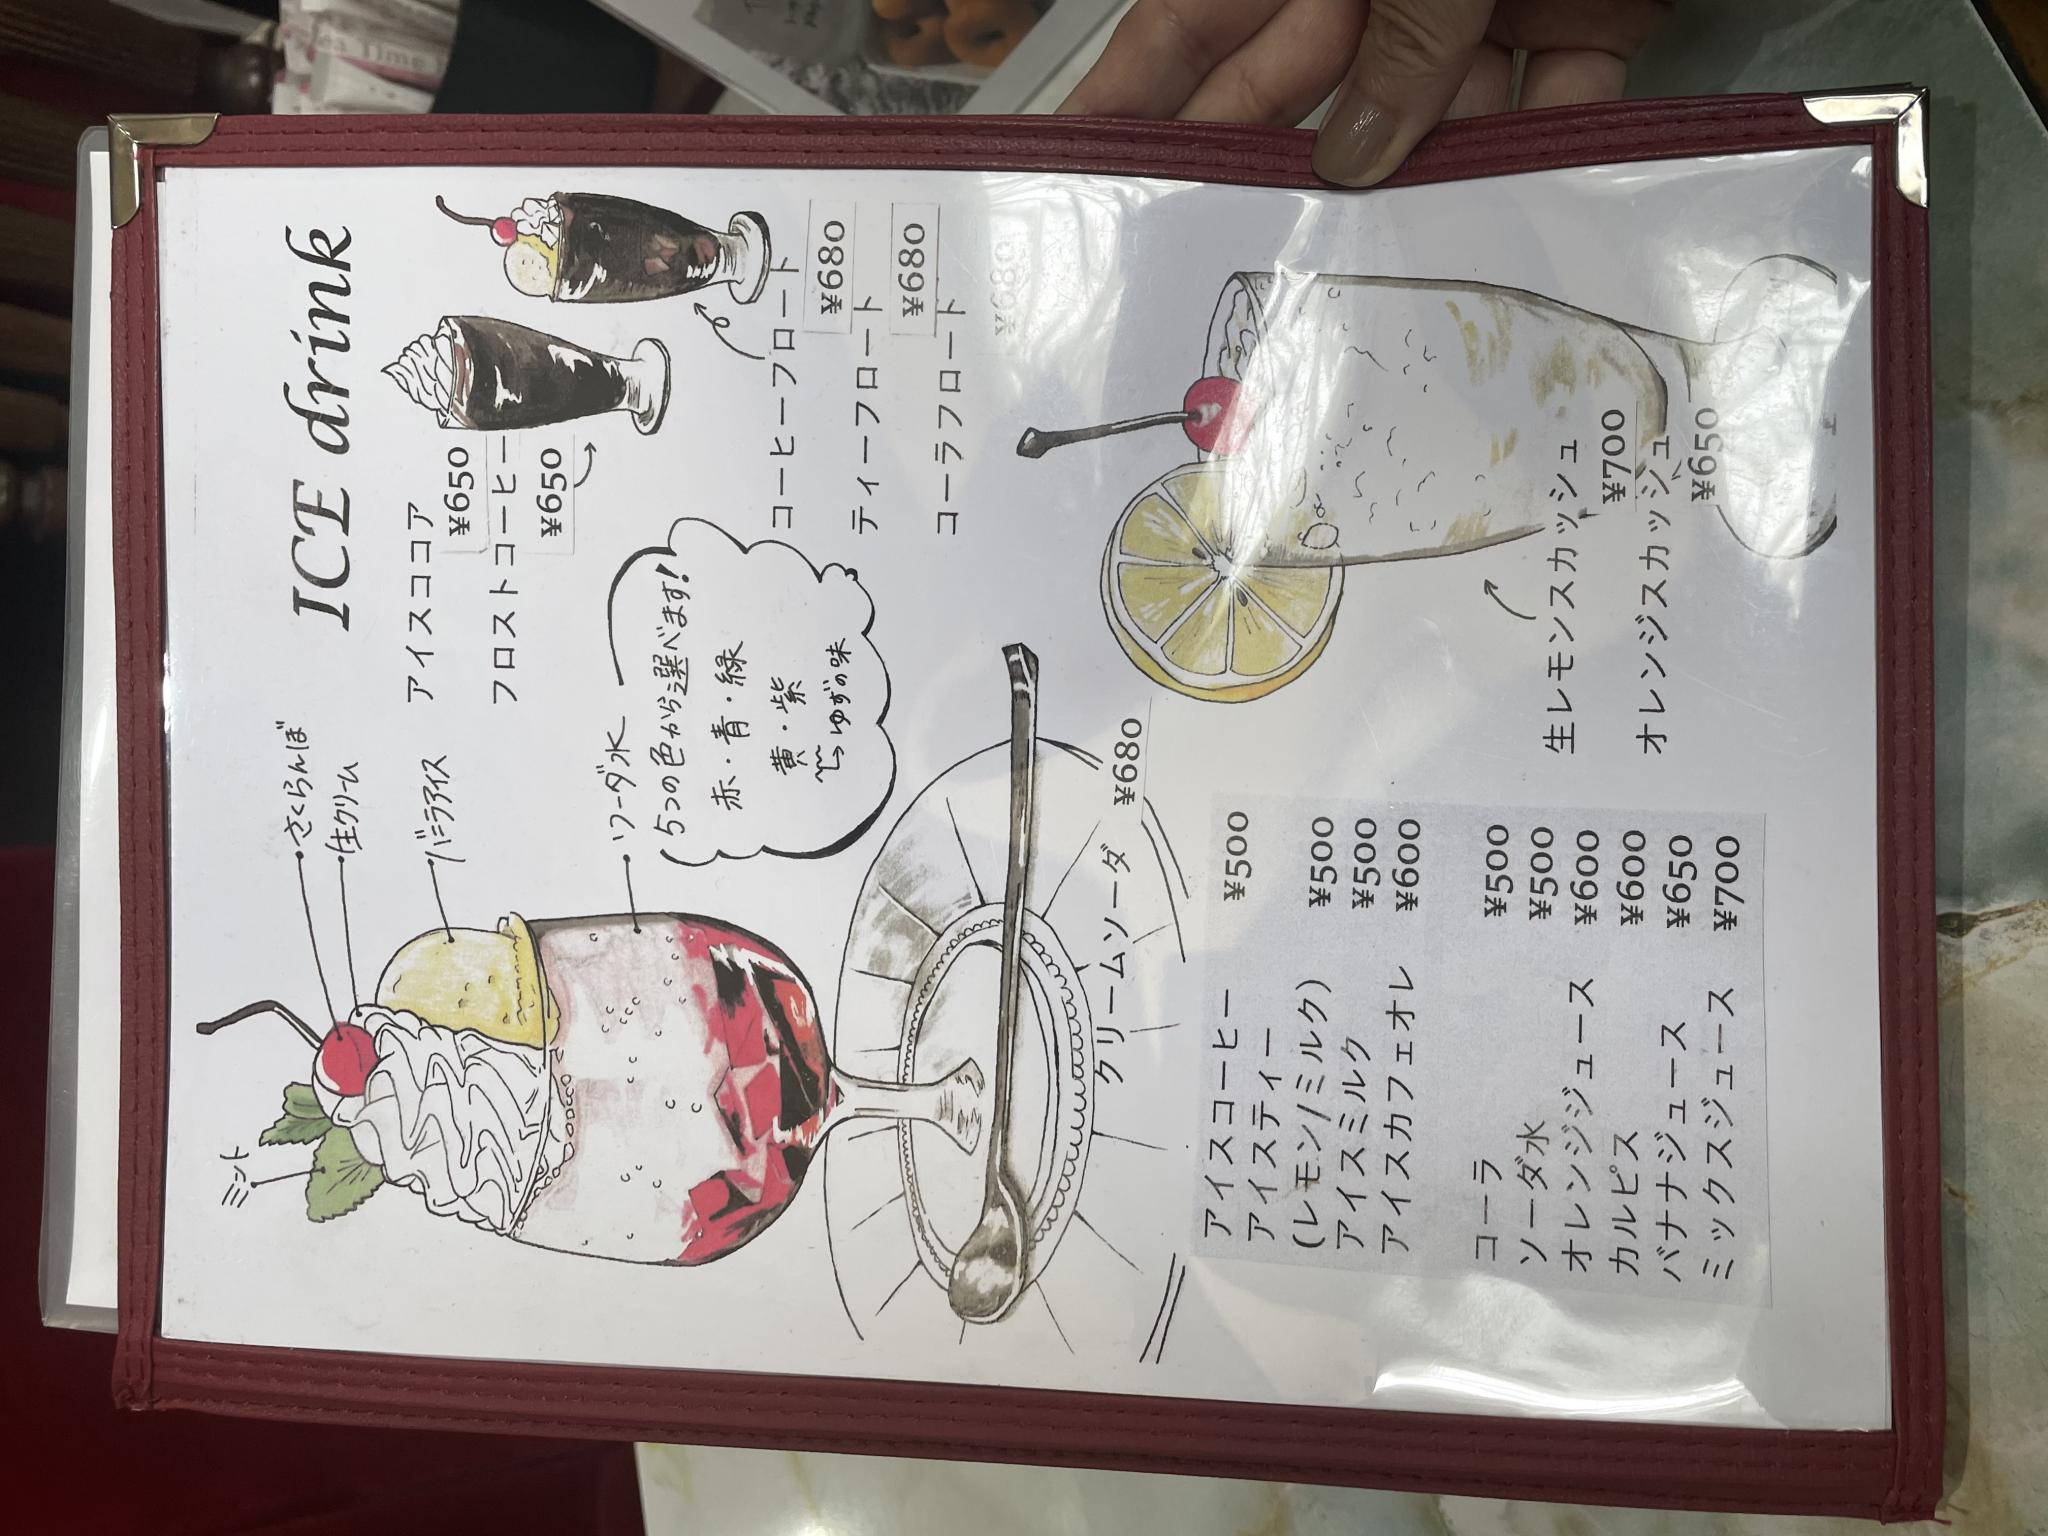 ICE drink
ミント
さくらんぼ
生クリーム
バニラアイス
ソーダ水
5つの色から選べます!
赤・青・緑
黄・紫
ゆずの味
クリームソーダ ¥680
アイスココア
¥650
フロストコーヒー
¥650
コーヒーフロート
¥680
ティーフロート
¥680
コーラフロート
¥680
アイスコーヒー ¥500
アイスティー
(レモン/ミルク) ¥500
アイスミルク ¥500
アイスカフェオレ ¥600
コーラ ¥500
ソーダ水 ¥500
オレンジジュース ¥600
カルピス ¥600
バナナジュース ¥650
ミックスジュース ¥700
生レモンスカッシュ
¥700
オレンジスカッシュ
¥650
Time